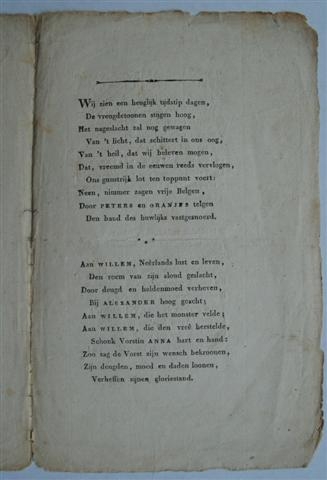 Wij zien een heuglijk tijdstip dagen,
De vreugdetoonen stijgen hoog,
Het nageslacht zal nog gewagen
Van 't licht, dat schittert in ons oog,
Van 't heil, dat wij beleven mogen,
Dat, vreemd in de eeuwen reeds vervlogen,
Ons gunstrijk lot ten toppunt voert:
Neen, nimmer zagen vrije Belgen,
Door PETERS en ORANJES telgen
Den band des huwlijks vastgesnoerd.
* * *
Aan WILLEM, Neêrlands lust en leven,
Den roem van zijn aloud geslacht,
Door deugd en heldenmoed verheven,
Bij ALEXANDER hoog geacht;
Aan WILLEM, die het monster velde;
Aan WILLEM, die den vreê herstelde,
Schonk Vorstin ANNA hart en hand:
Zoo zag de Vorst zijn wensch bekroonen,
Zijn deugden, moed en daden loonen,
Verheffen zijnen gloriestand.